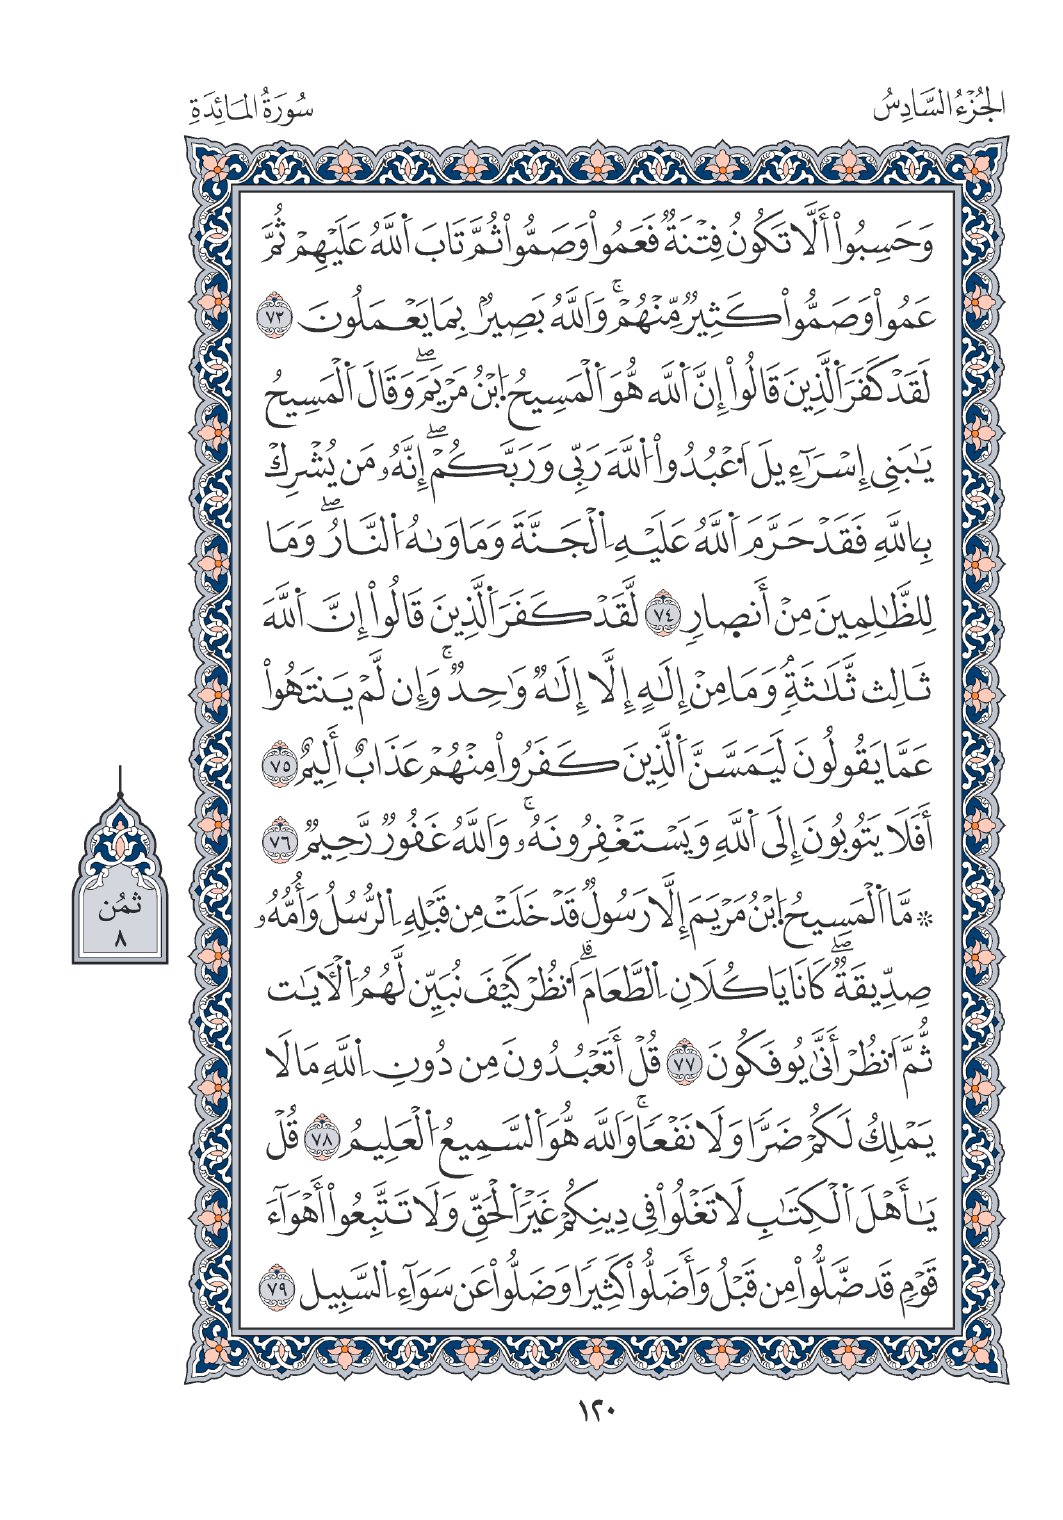 الجُزْءُ السَّادِسُ
سُورَةُ المَائِدَةِ
وَحَسِبُوا۟ أَلَّا تَكُونُ فِتْنَةٌ فَعَمُوا۟ وَصَمُّوا۟ ثُمَّ تَابَ اَ۬للَّهُ عَلَيْهِمْ ثُمَّ
عَمُوا۟ وَصَمُّوا۟ كَثِيرٌ مِّنْهُمْۚ وَاَللَّهُ بَصِيرٌۢ بِمَا يَعْمَلُونَ ٧٣
لَقَدْ كَفَرَ اَ۬لَّذِينَ قَالُوا۟ إِنَّ اَ۬للَّه هُّوَ اَ۬لْمَسِيحُ اُ۪بْنُ مَرْيَمَۖ وَقَالَ اَ۬لْمَسِيحُ
يَٰبَنِى إِسْرَآءِيلَ اَ۟عْبُدُوا۟ اُ۬للَّهَ رَبِّى وَرَبَّكُمْۖ إِنَّهُۥ مَن يُشْرِك
بِاللَّهِ فَقَدْ حَرَّمَ اَ۬للَّهُ عَلَيْهِ اِ۬لْجَنَّةَ وَمَاوَىٰهُ اُ۬لنَّارُۖ وَمَا
لِلظَّٰلِمِينَ مِنْ أَنصارِ ٧٤ لَّقَدْ كَفَرَ اَ۬لَّذِينَ قَالُوا۟ إِنَّ اَ۬للَّهَ
ثَالِث ثَّلَٰثَةٍۘ وَمَا مِنْ إِلَٰهٍ إِلَّا إِلَٰهٌ وَٰحِدٌۚ وَإِن لَّمْ يَنتَهُوا۟
عَمَّا يَقُولُونَ لَيَمَسَّنَّ اَ۬لَّذِينَ كَفَرُوا۟ مِنْهُمْ عَذَابٌ أَلِيمٌ ٧٥
أَفَلَا يَتُوبُونَ إِلَى اَ۬للَّهِ وَيَسْتَغْفِرُونَهُۥۚ وَاَللَّهُ غَفُورٌ رَّحِيمٌ ٧٦
۞ مَّا اَ۬لْمَسِيحُ اُ۪بْنُ مَرْيَمَ إِلَّا رَسُولٌ قَدْ خَلَتْ مِن قَبْلِهِ اِ۬لرُّسُلُ وَأُمُّهُۥ
صِدِّيقَةٌۖ كَانَا يَاكُلَانِ اِ۬لطَّعَامَۗ اَ۟نظُرْ كَيْفَ نُبَيِّن لَّهُمُ اُ۬لْأٓيَٰت
ثُّمَّ اَ۟نظُرْ أَنَّىٰ يُوفَكُونَ ٧٧ قُلْ أَتَعْبُدُونَ مِن دُونِ اِ۬للَّهِ مَا لَا
يَمْلِكُ لَكُمْ ضَرًّا وَلَا نَفْعًاۚ وَاَللَّه هُّوَ اَ۬لسَّمِيعُ اُ۬لْعَلِيمُ ٧٨ قُلْ
يَٰأَهْلَ اَ۬لْكِتَٰبِ لَا تَغْلُوا۟ فِى دِينِكُمْ غَيْرَ اَ۬لْحَقِّ وَلَا تَتَّبِعُوا۟ أَهْوَآءَ
قَوْمٍ قَد ضَّلُّوا۟ مِن قَبْلُ وَأَضَلُّوا۟ كَثِيرًا وَضَلُّوا۟ عَن سَوَآءِ اِ۬لسَّبِيلِ ٧٩
ثُمُن
٨
١٢٠